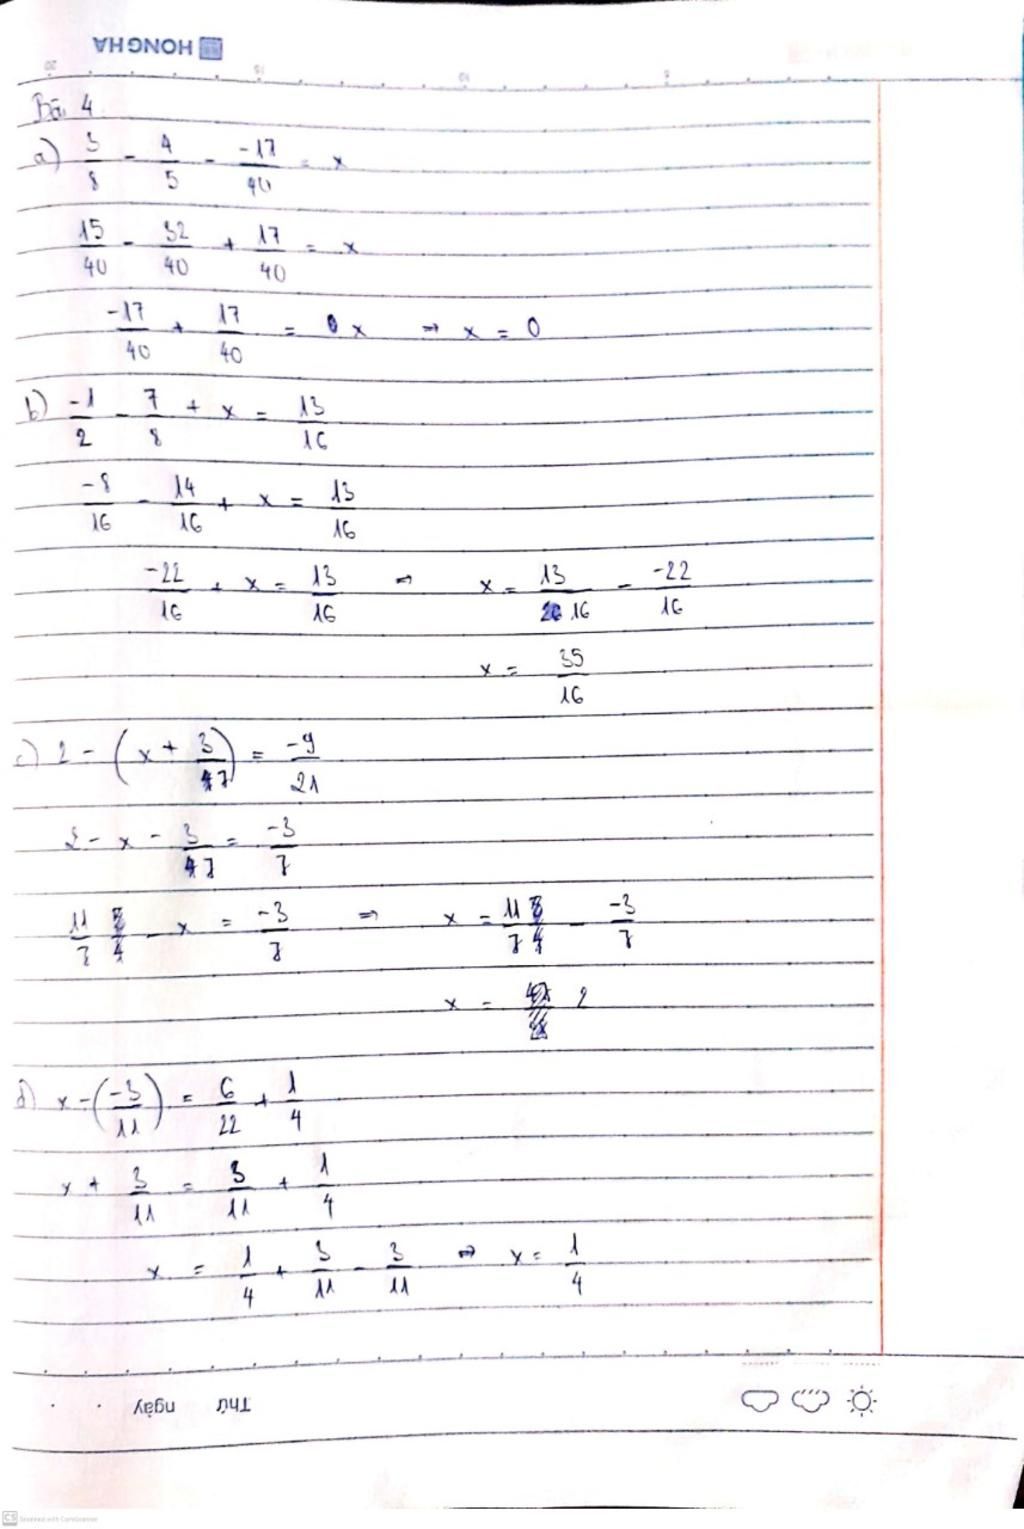 HONG HA
20 15 10 5
Bài 4
a) 3/8 - 4/5 - -17/40 = x
15/40 - 32/40 + 17/40 = x
-17/40 + 17/40 = x ⇒ x = 0
b) -1/2 - 7/8 + x = 13/16
-8/16 - 14/16 + x = 13/16
-22/16 + x = 13/16 ⇒ x = 13/16 - -22/16
x = 35/16
c) 2 - (x + 3/7) = -9/21
2 - x - 3/7 = -3/7
11/7 - x = -3/7 ⇒ x = 11/7 - -3/7
x = 2
d) x - (-3/11) = 6/22 + 1/4
x + 3/11 = 3/11 + 1/4
x = 1/4 + 3/11 - 3/11 ⇒ x = 1/4
Thứ ngày
CS Scanned with CamScanner